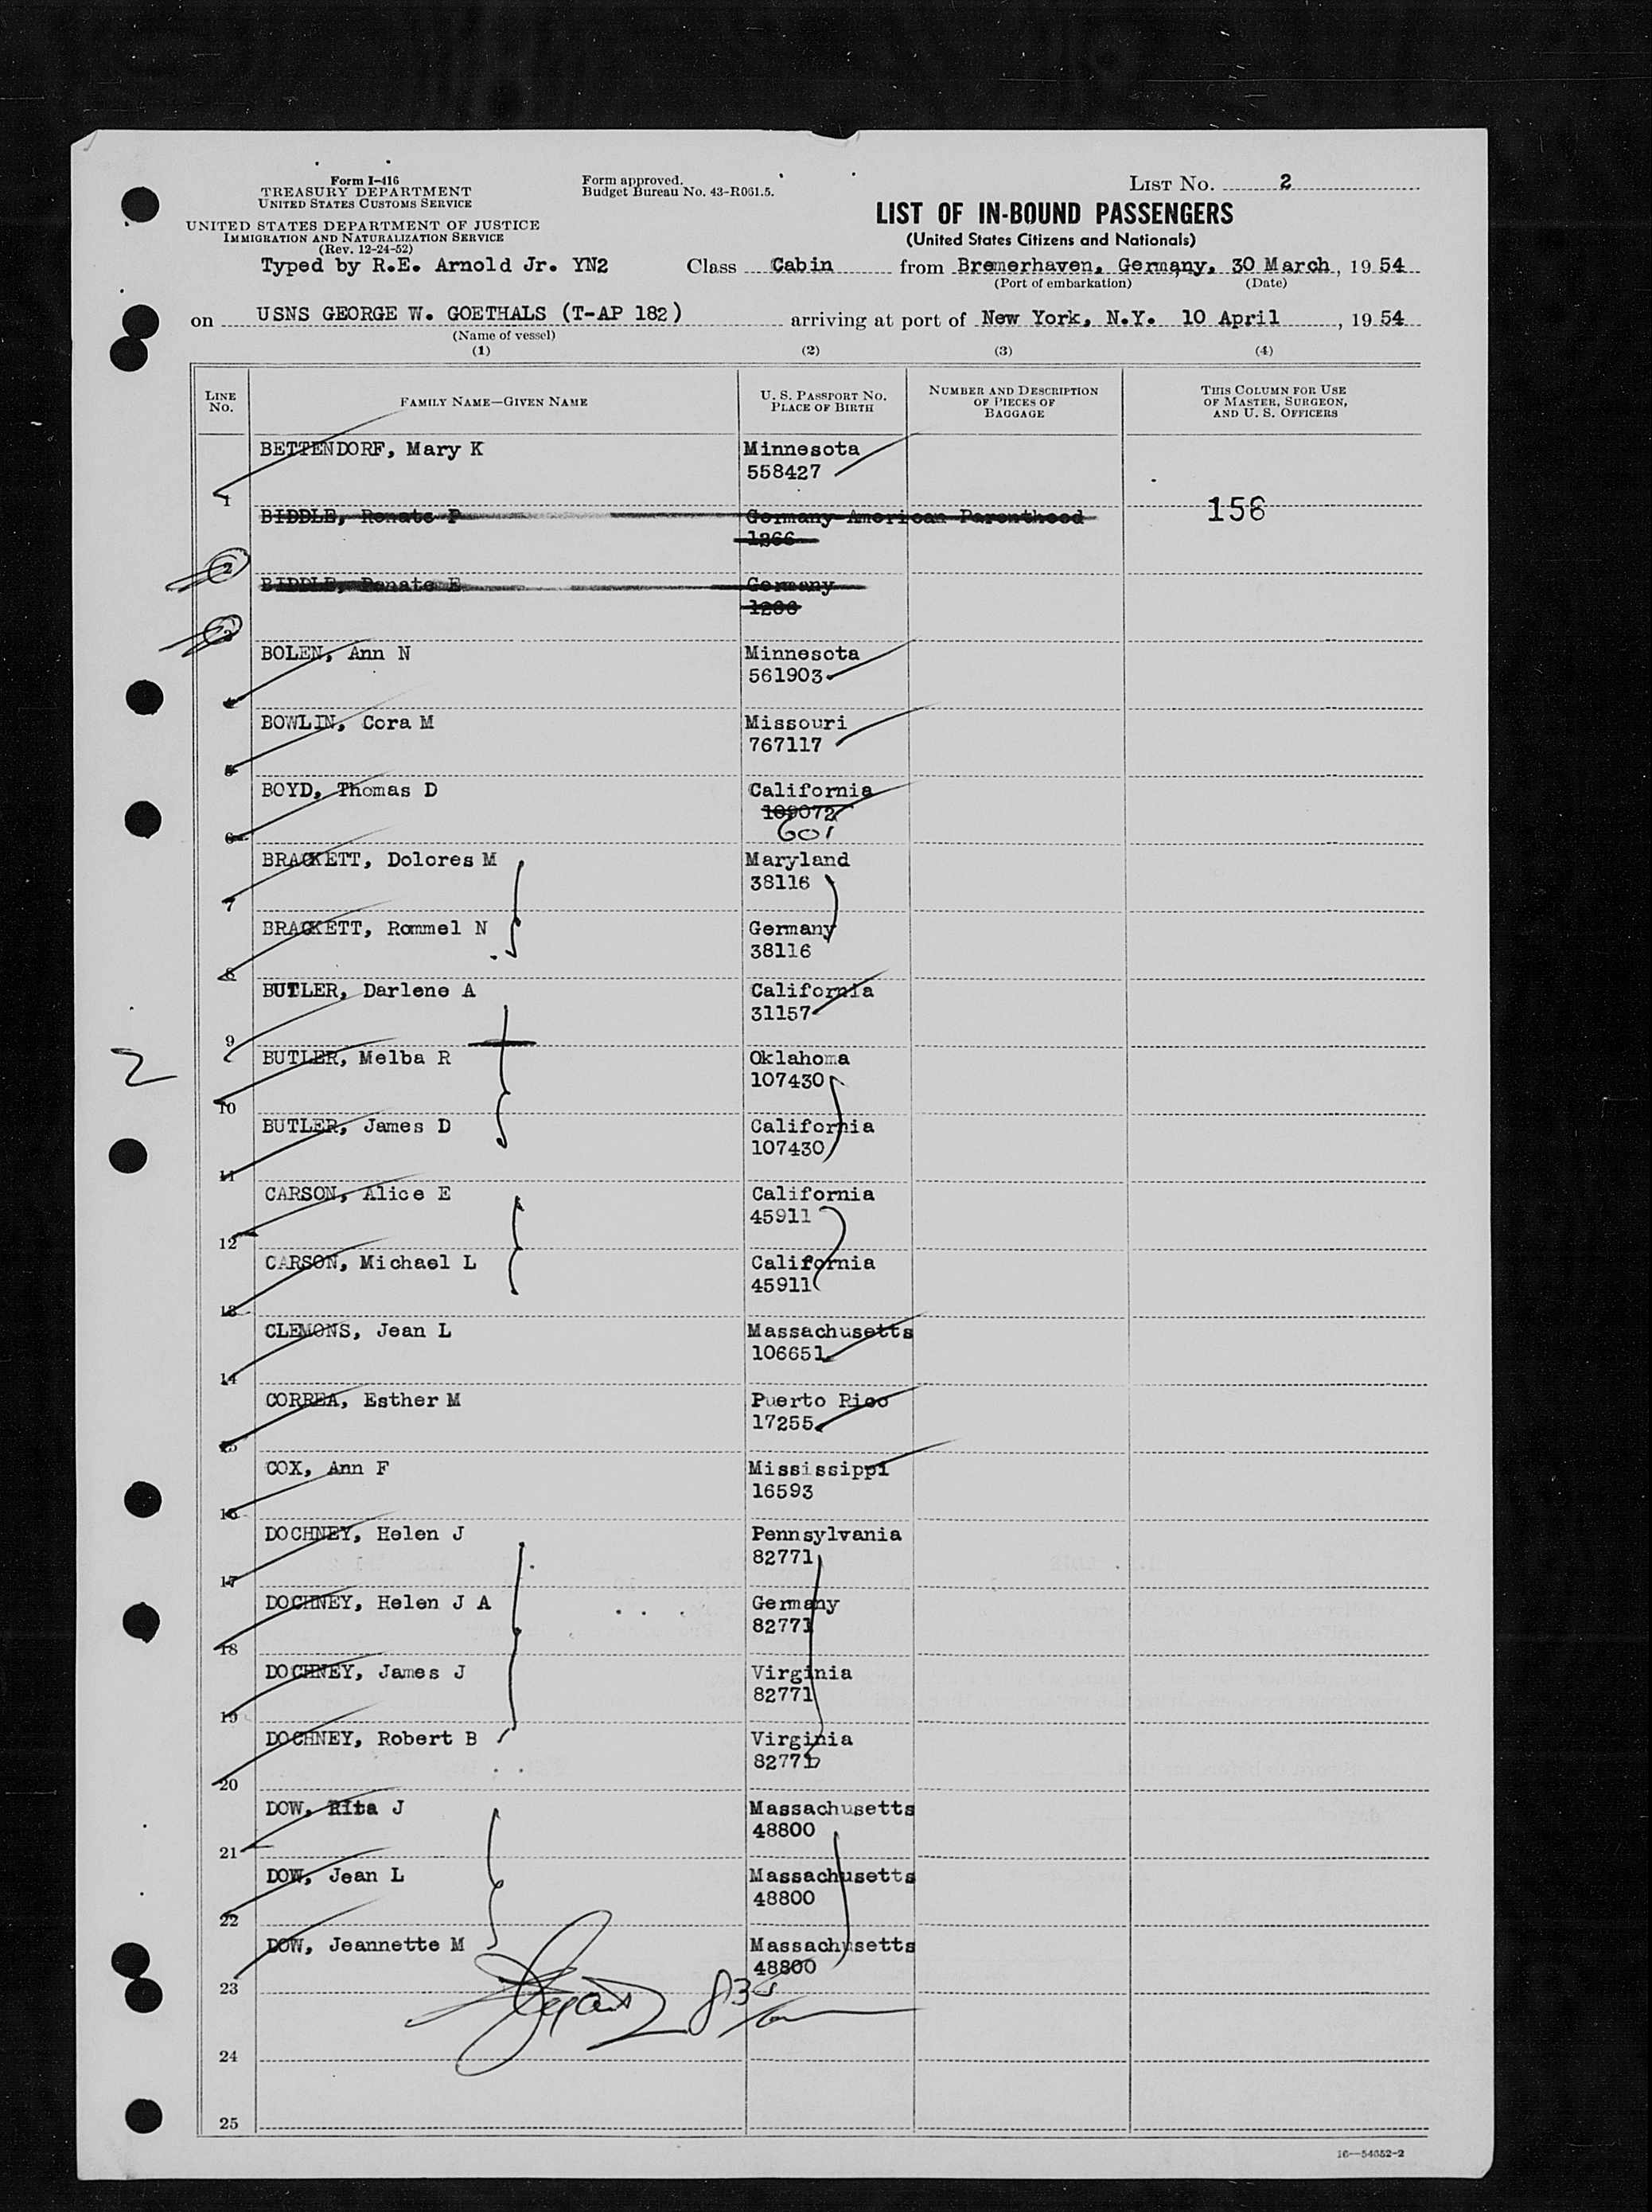 Form I-416
TREASURY DEPARTMENT
UNITED STATES CUSTOMS SERVICE
UNITED STATES DEPARTMENT OF JUSTICE
IMMIGRATION AND NATURALIZATION SERVICE
(Rev. 12-24-52)
Form approved.
Budget Bureau No. 43-R061.5.
LIST NO. 2
LIST OF IN-BOUND PASSENGERS
(United States Citizens and Nationals)
Typed by R.E. Arnold Jr. YN2 Class Cabin from Bremerhaven, Germany, 30 March, 1954
(Port of embarkation) (Date)
on USNS GEORGE W. GOETHALS (T-AP 182) arriving at port of New York, N.Y. 10 April, 1954
(Name of vessel)
(1) (2) (3) (4)
LINE NO. FAMILY NAME—GIVEN NAME U. S. PASSPORT NO. PLACE OF BIRTH NUMBER AND DESCRIPTION OF PIECES OF BAGGAGE THIS COLUMN FOR USE OF MASTER, SURGEON, AND U. S. OFFICERS
BETTENDORF, Mary K Minnesota
1 558427
156
BIDDLE, Renate P Germany American Parenthood
2 1266
BIDDLE, Renate E Germany
3 1266
BOLEN, Ann N Minnesota
4 561903
BOWLIN, Cora M Missouri
5 767117
BOYD, Thomas D California
109072
6 601
BRACKETT, Dolores M Maryland
7 38116
BRACKETT, Rommel N Germany
8 38116
BUTLER, Darlene A California
9 31157
2
BUTLER, Melba R Oklahoma
10 107430
BUTLER, James D California
11 107430
CARSON, Alice E California
12 45911
CARSON, Michael L California
13 45911
CLEMONS, Jean L Massachusetts
14 106651
CORREA, Esther M Puerto Rico
15 17255
COX, Ann F Mississippi
16 16593
DOCHNEY, Helen J Pennsylvania
17 82771
DOCHNEY, Helen J A Germany
18 82771
DOCHNEY, James J Virginia
19 82771
DOCHNEY, Robert B Virginia
20 82771
DOW, Rita J Massachusetts
21 48800
DOW, Jean L Massachusetts
22 48800
DOW, Jeannette M Massachusetts
23 48800
24
25
16—54652-2